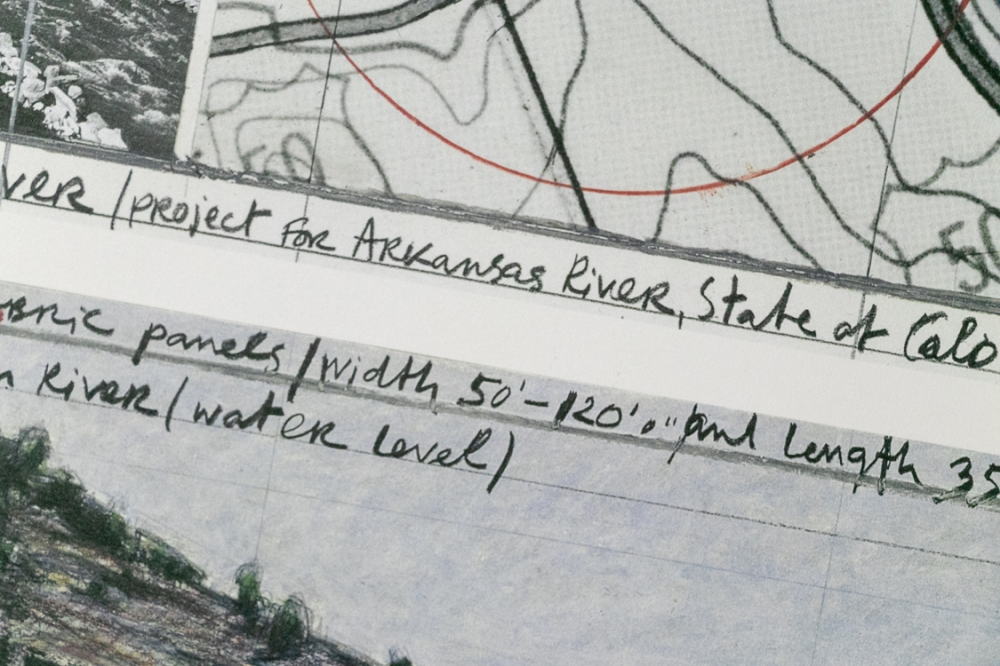 VER / project FOR ARKansas RiVER, State of Colo
BRic panels / width 50'-120'0" and length 35
RiVER / water level /